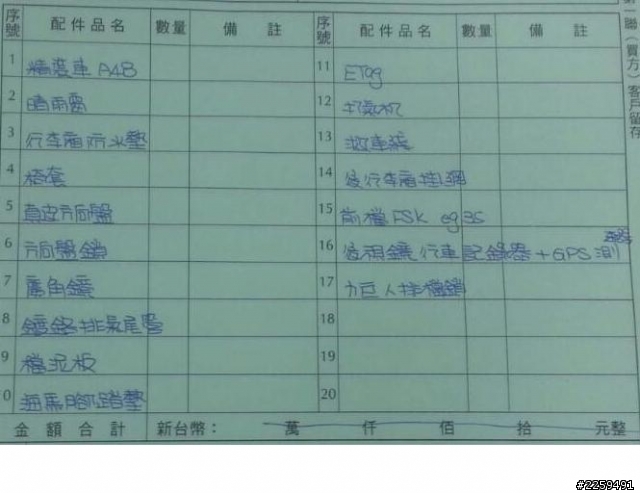 序號 配件品名 數量 備註 序號 配件品名 數量 備註
1 精裝車 A4B 11 ETag
2 晴雨窗 12 打氣机
3 行李廂防水墊 13 救車線
4 椅套 14 後行李廂挂網
5 真皮方向盤 15 前檔 FSK eg35
6 方向盤鎖 16 後視鏡行車記錄器+GPS測
7 廣角鏡 17 力巨人排檔鎖
8 鍍鉻排氣尾管 18
9 檔泥板 19
0 海馬腳踏墊 20
金額合計 新台幣： 萬 仟 佰 拾 元整
聯（賣方）客戶留存
#2259491